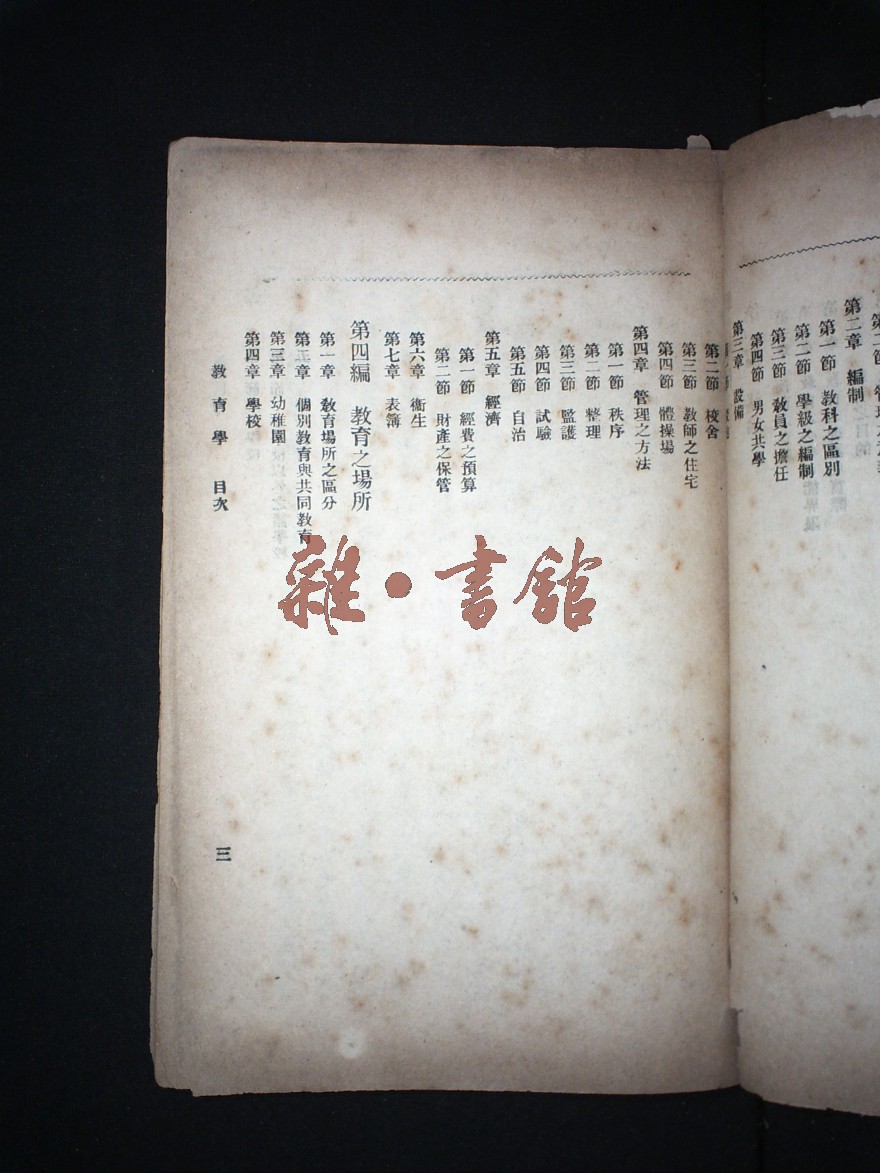 第二章 編制
第一節 教科之區別
第二節 學級之編制
第三節 教員之擔任
第四節 男女共學
第三章 設備
第二節 校舍
第三節 教師之住宅
第四節 體操場
第四章 管理之方法
第一節 秩序
第二節 整理
第三節 監護
第四節 試驗
第五節 自治
第五章 經濟
第一節 經費之預算
第二節 財產之保管
第六章 衞生
第七章 表簿
第四編 教育之場所
第一章 教育場所之區分
第二章 個別教育與共同教育
第三章 幼稚園
第四章 學校
教育學 目次
三
雜·書館